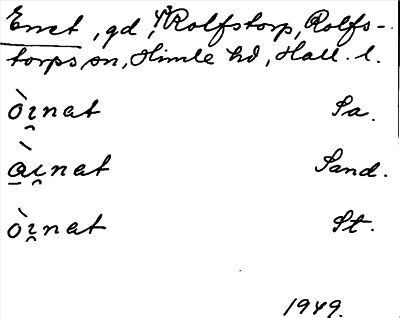 Enet, gd, i Rolfstorp, Rolfs-
torps sn, Himle hd, Hall. l.
òi̯nat Sa.
à̱i̯nat Sand.
òi̯nat St.
1949.